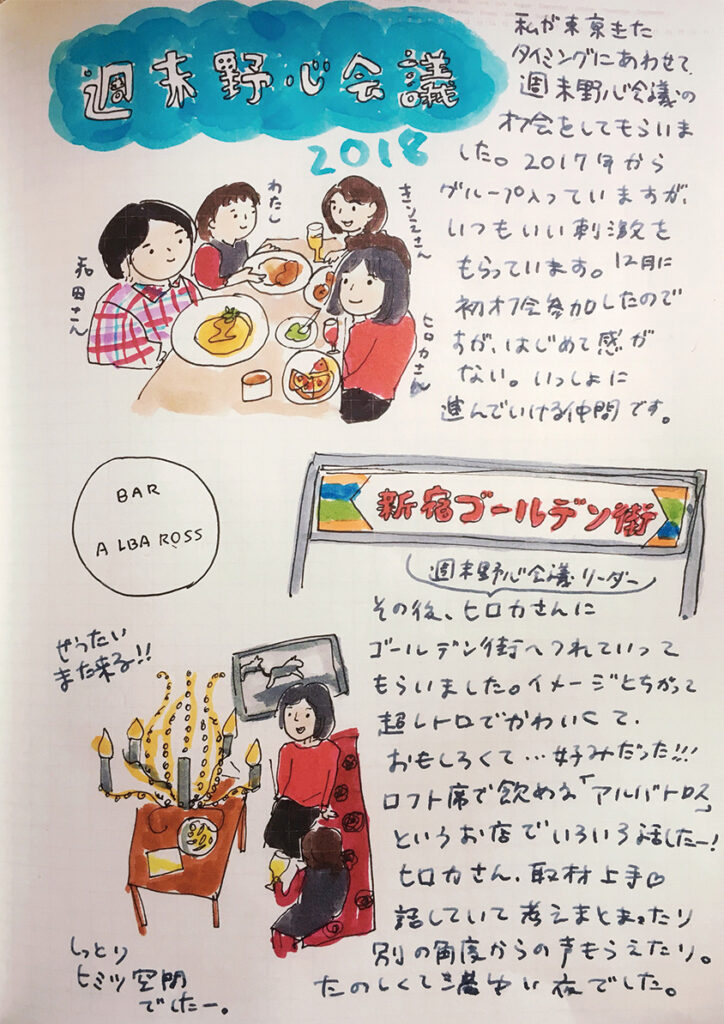 週末野心会議
2018
私が東京きた
タイミングにあわせて、
週末野心会議の
オフ会をしてもらいま
した。2017年から
グループ入っていますが、
いつもいい刺激を
もらっています。12月に
初オフ会参加したので
すが、はじめて感が
ない。いっしょに
進んでいける仲間です。
和田さん
わたし
きりえさん
ヒロカさん
BAR
ALBA ROSS
新宿ゴールデン街
週末野心会議リーダー
その後、ヒロカさんに
ゴールデン街へつれていって
もらいました。イメージとちがって
超レトロでかわいくて、
おもしろくて…好みだった!!!
ロフト席で飲める「アルバトロス」
というお店でいろいろ話したー!
ヒロカさん、取材上手♡
話していて考えまとまったり
別の角度からの声もらえたり。
たのしくて濃ゆい夜でした。
ぜったい
また来る!!
しっとり
ヒミツ空間
でしたー。